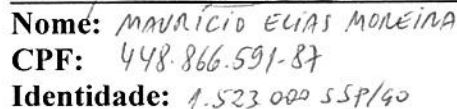 Nome: MAURÍCIO ELIAS MOREIRA
CPF: 448.866.591-87
Identidade: 1.523.000 SSP/GO